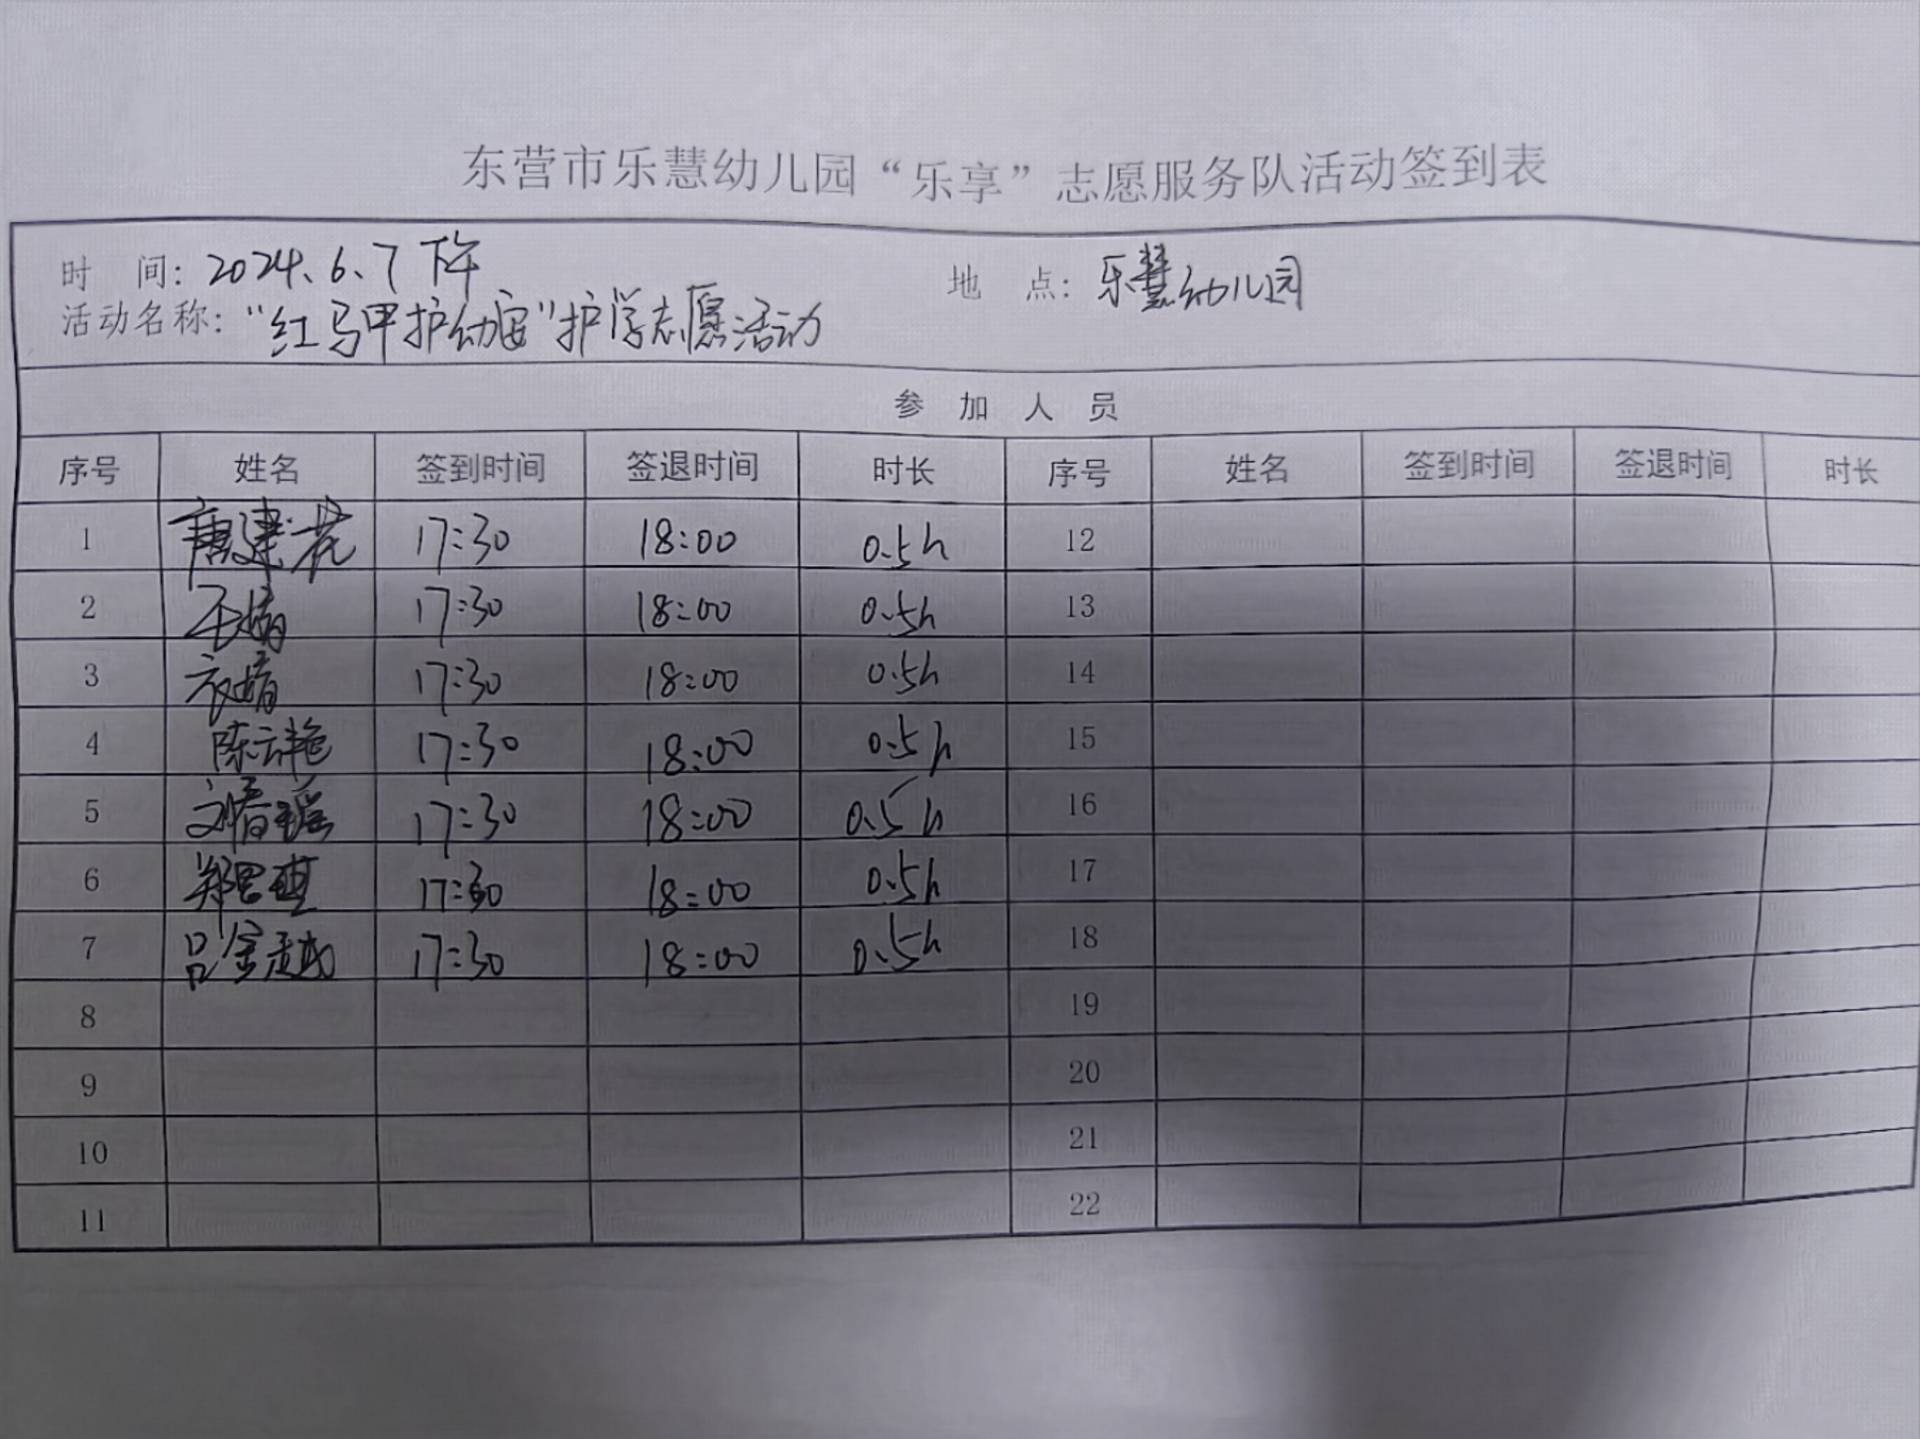 东营市乐慧幼儿园“乐享”志愿服务队活动签到表
时 间：2024.6.7 下午 地 点：乐慧幼儿园
活动名称：“红马甲护幼安”护学志愿活动
参 加 人 员
序号 姓名 签到时间 签退时间 时长 序号 姓名 签到时间 签退时间 时长
1 唐建花 17:30 18:00 0.5h 12
2 17:30 18:00 0.5h 13
3 衣婧 17:30 18:00 0.5h 14
4 陈云艳 17:30 18:00 0.5h 15
5 刘春瑶 17:30 18:00 0.5h 16
6 17:30 18:00 0.5h 17
7 吕金越 17:30 18:00 0.5h 18
8 19
9 20
10 21
11 22